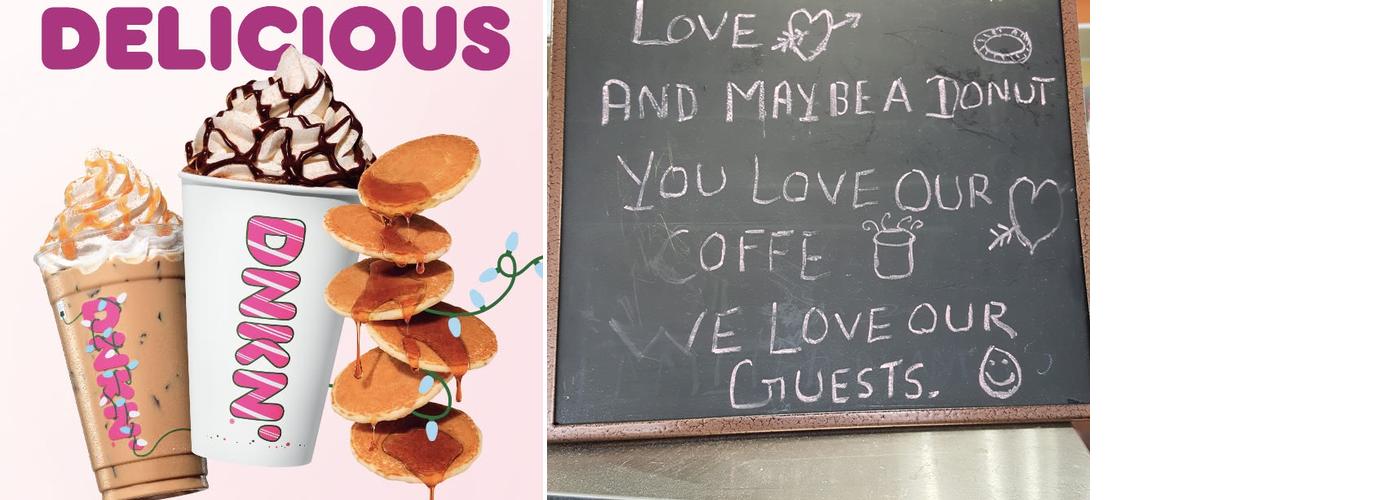 DELICIOUS
DUNKIN'
DUNKIN'
LOVE
AND MAYBE A DONUT
YOU LOVE OUR
COFFE
WE LOVE OUR
GUESTS.